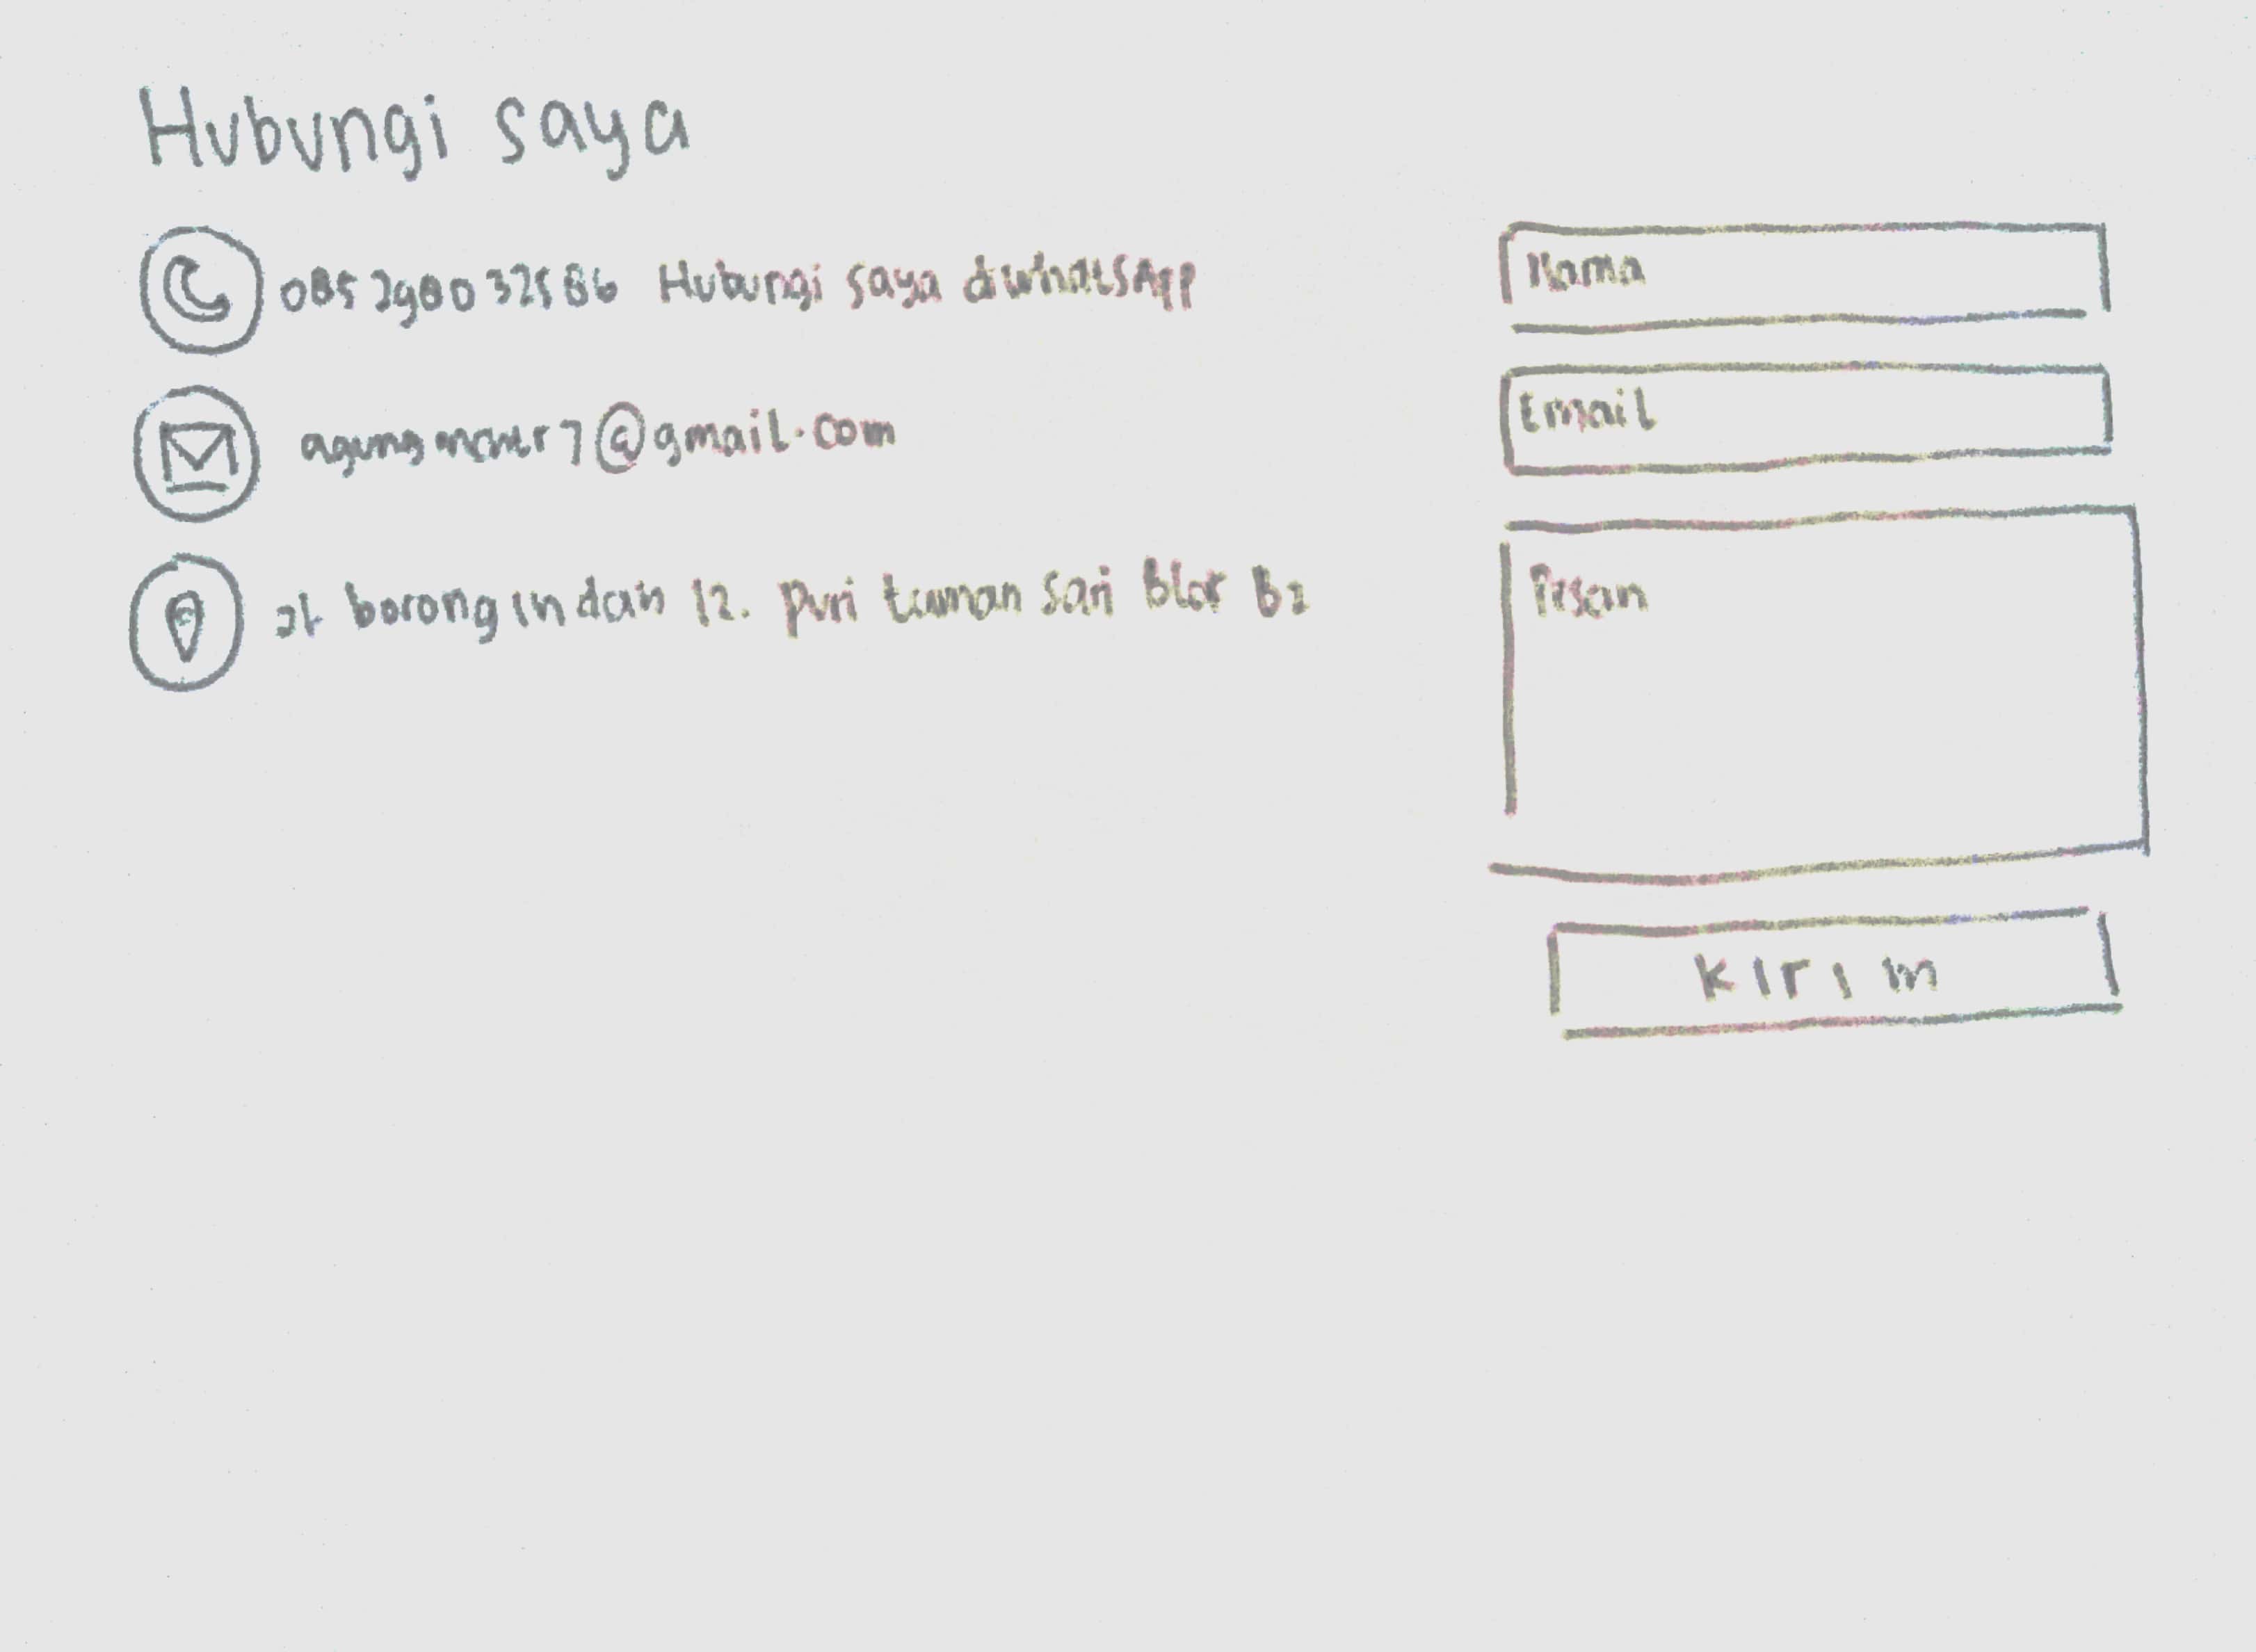 Hubungi saya
085298032586 Hubungi saya diwhatsApp
@gmail.com
Jl borong indah 12. puri taman sari Blok B2
Nama
Email
Pesan
Kirim